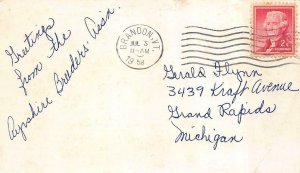 Greetings
from the
Ayrshire Breeders' Assn.
BRANDON, VT.
JUL 3
11-AM
1958
2¢
Gerald Flynn
3439 Kraft Avenue
Grand Rapids
Michigan